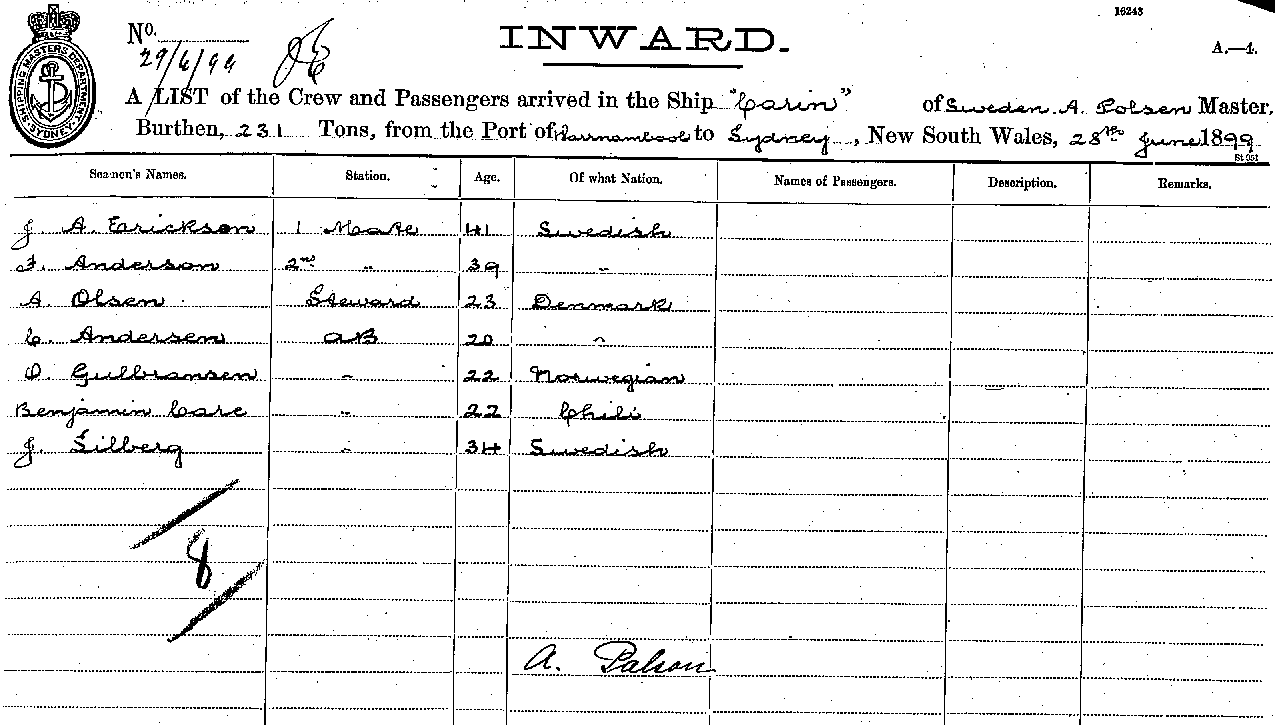 16243
No.
INWARD.
A.—4.
29/6/99
SHIPPING MASTERS DEPARTMENT SYDNEY
A LIST of the Crew and Passengers arrived in the Ship "Carin" of Sweden. A. Polsen Master,
Burthen, 231 Tons, from the Port of Warrnambool to Sydney, New South Wales, 28th June 1899
St 951
Seamen's Names. Station. Age. Of what Nation. Names of Passengers. Description. Remarks.
J. A. Erickson 1 Mate 41 Swedish
F. Anderson 2nd " 39 "
A. Olsen Steward 23 Denmark
C. Andersen AB 20 "
O. Gulbransen " 22 Norwegian
Benjamin Care " 22 Chili
J. Lilberg " 34 Swedish
8
A. Palson